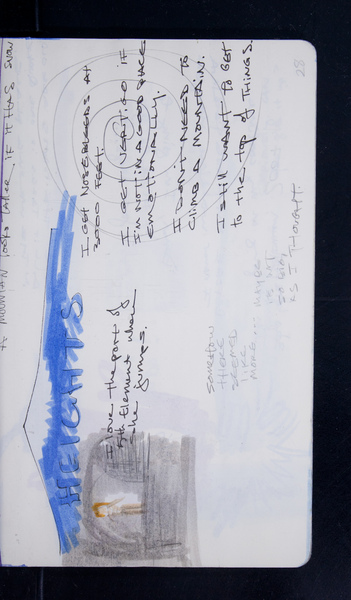 MOUNTAIN looks taller if it has snow
HEIGHTS
I GET NOSEBLEEDS AT
3000 FEET.
I GET VERTIGO IF
I'M NOT IN A GOOD SPACE
EMOTIONALLY.
I DON'T NEED TO
CLIMB A MOUNTAIN.
I STILL WANT TO GET
to the top of THINGS.
I love the part of
5th Element when
she jumps.
SOMEHOW
THERE
SEEMED
LIKE
MORE...
MAYBE
IS NOT
SO BIG
AS I THOUGHT
28